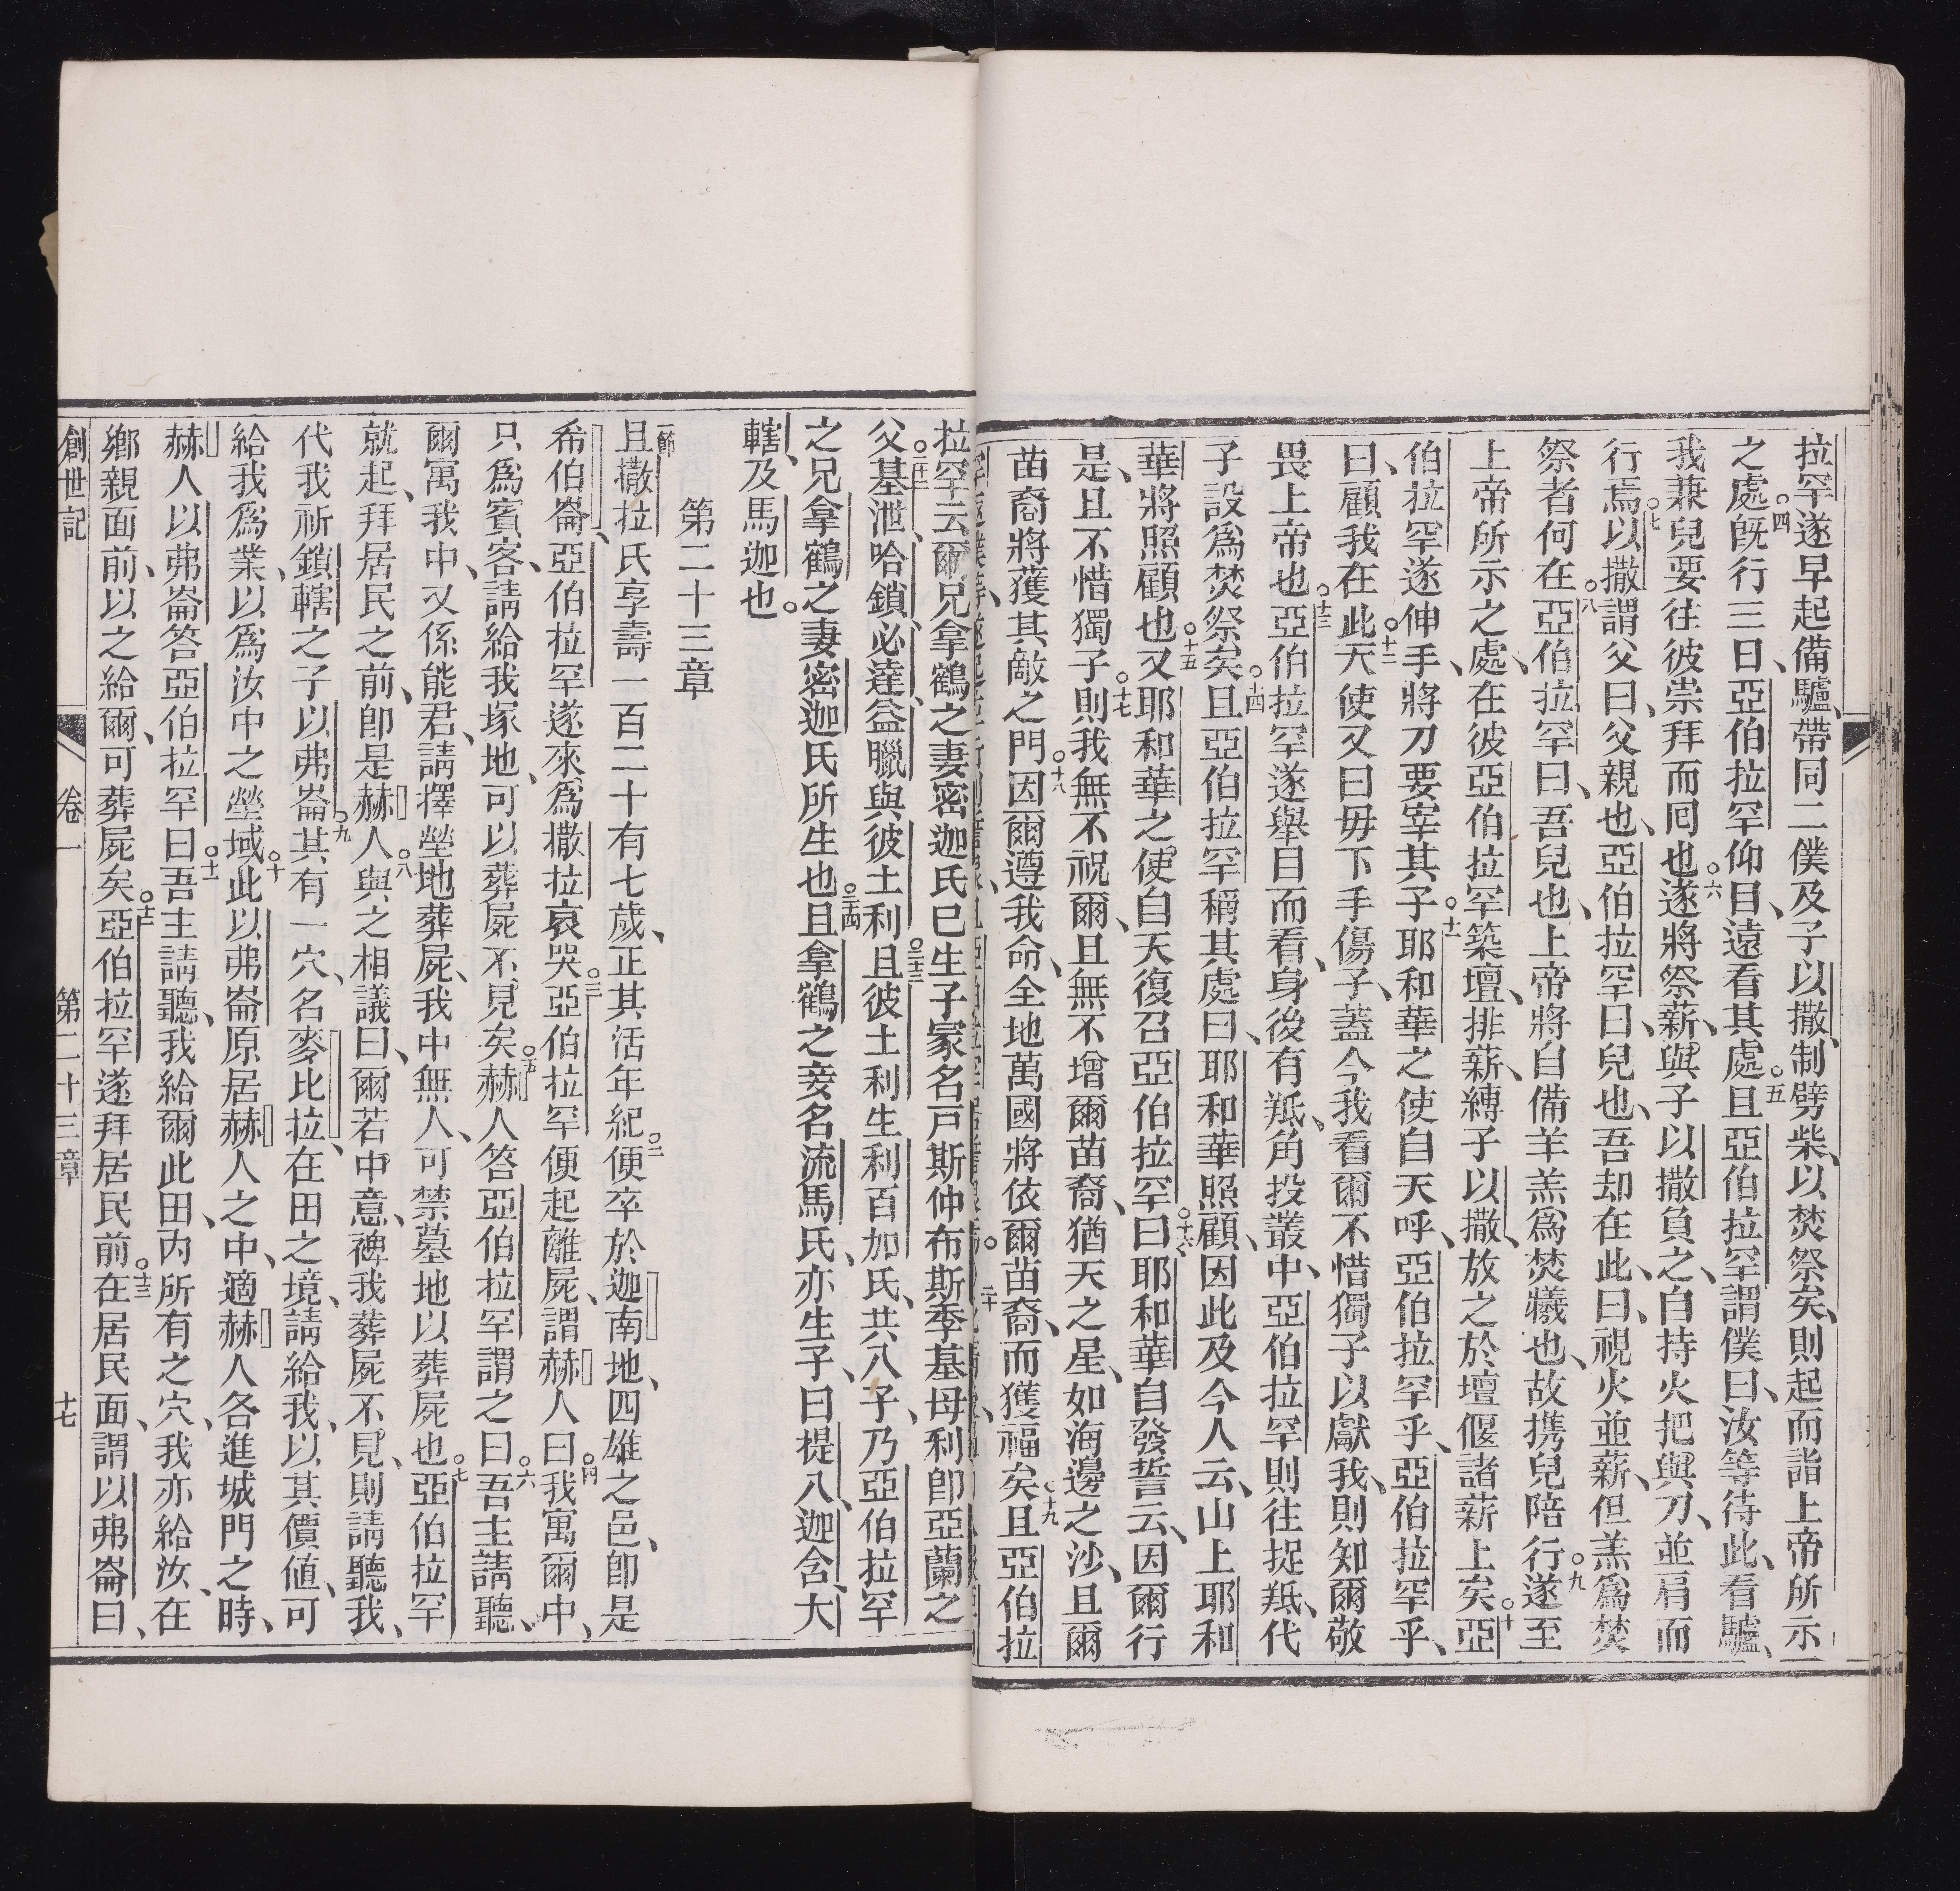 拉罕遂早起備驢、帶同二僕及子以撒、制劈柴、以焚祭矣、則起而詣上帝所示
之處○四既行三日、亞伯拉罕仰目、遠看其處○五且亞伯拉罕謂僕曰、汝等待此、看驢、
我兼兒要往彼崇拜而囘也○六遂將祭薪、與子以撒負之、自持火把與刀、並肩而
行焉○七以撒謂父曰、父親也、亞伯拉罕曰、兒也、吾却在此、曰、視火並薪、但羔爲焚
祭者何在○八亞伯拉罕曰、吾兒也、上帝將自備羊羔、爲焚犧也、故携兒陪行○九遂至
上帝所示之處、在彼亞伯拉罕築壇、排薪、縛子以撒、放之於壇偃諸薪上矣○十亞
伯拉罕遂伸手、將刀要宰其子○十一耶和華之使自天呼、亞伯拉罕乎、亞伯拉罕乎、
曰、顧我在此○十二天使又曰毋下手傷子、蓋今我看爾不惜獨子以獻我、則知爾敬
畏上帝也○十三亞伯拉罕遂舉目而看、身後有羝、角投叢中、亞伯拉罕則往捉羝、代
子設爲焚祭矣○十四且亞伯拉罕稱其處曰、耶和華照顧、因此及今人云、山上耶和
華將照顧也○十五又耶和華之使自天復召亞伯拉罕○十六曰、耶和華自發誓云、因爾行
是、且不惜獨子○十七則我無不祝爾、且無不增爾苗裔、猶天之星、如海邊之沙、且爾
苗裔將獲其敵之門○十八因爾遵我命、全地萬國將依爾苗裔、而獲福矣○十九且亞伯拉
拉罕云爾兄拿鶴之妻密迦氏巳生子家名戸斯仲布斯季基母利卽亞蘭之
父○二十二基泄、哈鎖、必達、益臘與彼土利○二十三且彼土利生利百加氏、共八子、乃亞伯拉罕
之兄拿鶴之妻密迦氏所生也○二十四且拿鶴之妾名流馬氏、亦生子、曰提八、迦含、大
轄、及馬迦也。
第二十三章
一節且撒拉氏享壽一百二十有七歲、正其活年紀○二便卒於迦南地、四雄之邑、卽是
希伯崙、亞伯拉罕遂來爲撒拉哀哭○三亞伯拉罕便起離屍、謂赫人曰○四我寓爾中、
只爲賓客、請給我塚地、可以葬屍不見矣○五赫人答亞伯拉罕謂之曰○六吾主請聽、
爾寓我中、又係能君、請擇塋地葬屍、我中無人、可禁墓地以葬屍也○七亞伯拉罕
就起、拜居民之前、卽是赫人○八與之相議曰、爾若中意、裨我葬屍不見、則請聽我、
代我祈鎖轄之子以弗崙○九其有一穴、名麥比拉、在田之境、請給我、以其價値、可
給我爲業、以爲汝中之塋域○十此以弗崙原居赫人之中、適赫人各進城門之時、
赫人以弗崙答亞伯拉罕曰○十一吾主請聽、我給爾此田、內所有之穴、我亦給汝、在
鄕親面前、以之給爾、可葬屍矣○十二亞伯拉罕遂拜居民前○十三在居民面、謂以弗崙曰、
創世記 卷一 第二十三章 十七